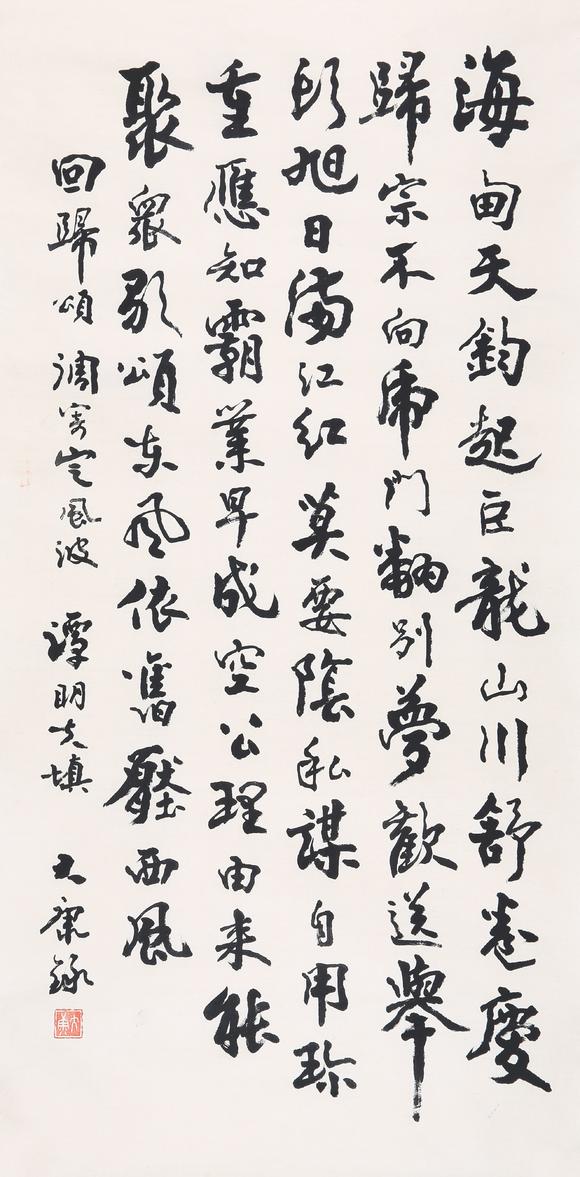 海甸天鈞起巨龍山川舒卷慶
歸宗不向虎門翻別夢歡送舉
頭旭日滿江紅莫要陰私謀自用珍
重應知霸業早成空公理由來能
聚眾歌頌東風依舊壓西風
回歸頌 調寄定風波 譚明 填 大康錄
大康